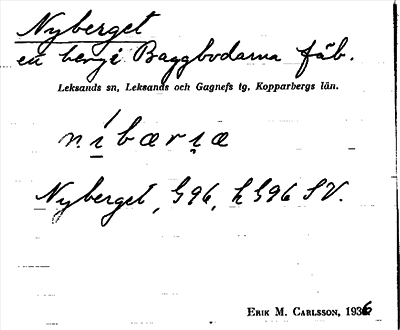 Nyberget
en berg i Baggbodarna fäb.
Leksands sn, Leksands och Gagnefs tg, Kopparbergs län.
níbæriæ
Nyberget, G96, h G96 SV.
ERIK M. CARLSSON, 1936